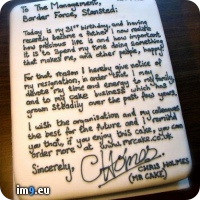 To The Management,
Border Force, Stansted:
Today is my 31st birthday, and having
recently become a father I now realise
how precious life is and how important
it is to spend my time doing something
that makes me, and other people, happy.
For that reason I hereby give notice of
my resignation, in order that I may
devote my time and energy to my family,
and to my cake business which has
grown steadily over the past few years.
I wish the organisation and my colleagues
the best for the future, and I remind
you that, if you enjoy this cake, you can
order more at www.mrcake.co.uk
Sincerely,
CHolmes
CHRIS HOLMES
(MR CAKE)
im9.eu